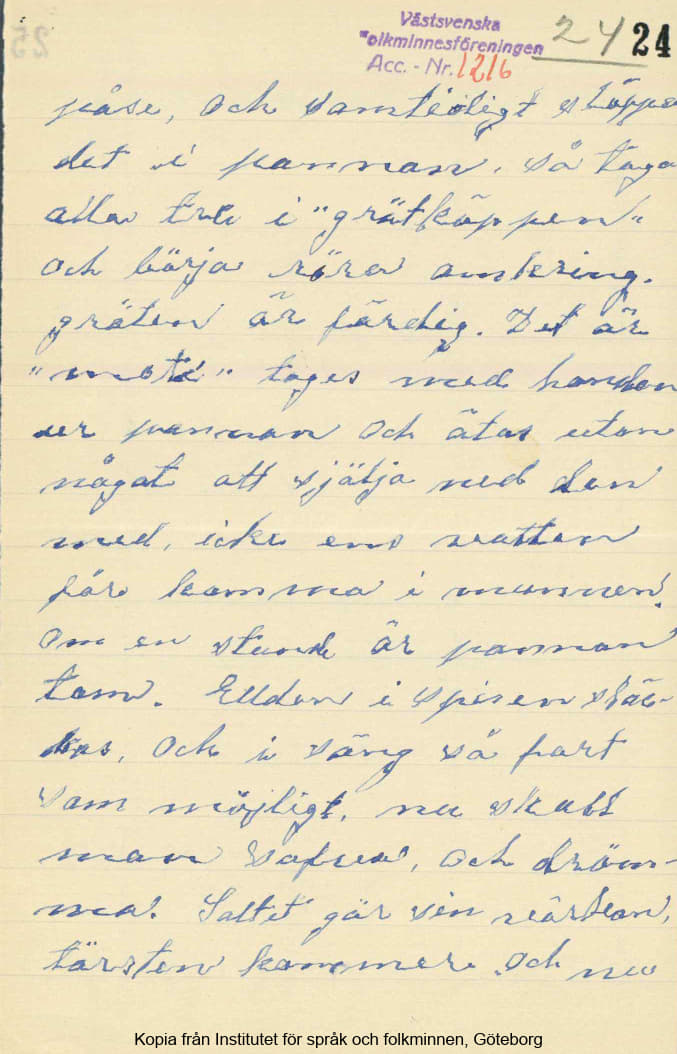 Västsvenska
Folkminnesföreningen
Acc. - Nr. 1216
24 24
25
påse, och samtidigt släppa
det i pannan, så taga
alla tre i "grötkäppen"
och börja röra omkring.
gröten är färdig. Det är
"mote" tages med handen
ur pannan och ätes utan
något att sjölja ned den
med, icke ens vatten
får komma i munnen.
Om en stund är pannan
tom. Ellden i spisen släc-
kes, och i säng så fort
som möjligt, nu skall
man sofva, och dröm-
ma. Saltet gör sin värkan,
törsten kommer och nu
Kopia från Institutet för språk och folkminnen, Göteborg